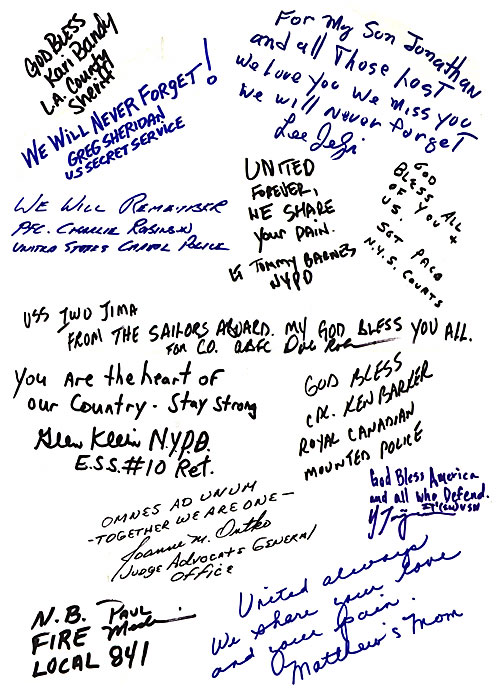 GOD BLESS
Kari Bandy
L.A. County
Sheriff
For My Son Jonathan
and all Those Lost
We Love You We miss you
We will Never forget
Lee
WE WILL NEVER FORGET!
GREG SHERIDAN
US SECRET SERVICE
UNITED
FOREVER,
WE SHARE
YOUR PAIN.
Lt TOMMY BARNES
NYPD
GOD
BLESS ALL
OF YOU +
US.
SGT PACE
N.Y.S. COURTS
WE WILL REMEMBER
PFC. CHARLIE ROBINSON
UNITED STATES CAPITOL POLICE
USS IWO JIMA
FROM THE SAILORS ABOARD. MY GOD BLESS YOU ALL.
FOR CO.
You Are the heart of
our Country - Stay Strong
Glen Klein N.Y.P.D.
E.S.S. #10 Ret.
GOD BLESS
CPL. KEN BARKER
ROYAL CANADIAN
MOUNTED POLICE
God Bless America
and all who Defend.
OMNES AD UNUM
-TOGETHER WE ARE ONE-
Joanne M.
Judge Advocate General
Office
N.B. PAUL
FIRE
LOCAL 841
United always
We share your love
and your pain.
Matthew's Mom